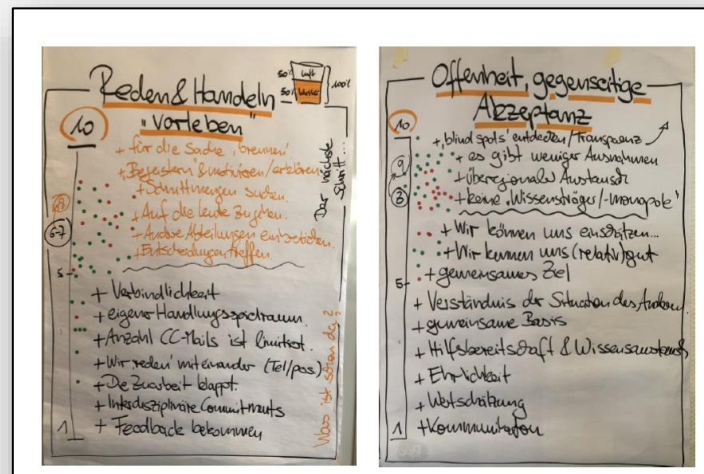 Reden & Handeln
"vorleben"
50% Luft
50% Wasser
100%
10
+ für die Sache 'brennen'
+ Begeistern & motivieren/erklären
+ Schnittmengen suchen.
+ Auf die Leute zugehen.
+ Andere Abteilungen einbeziehen.
+ Entscheidungen treffen
Der nächste Schritt...
8
6-7
5
+ Verbindlichkeit
+ eigener Handlungsspielraum.
+ Anzahl CC-Mails ist limitiert.
+ Wir 'reden' miteinander (Tel/pers)
+ Die Zuarbeit klappt.
+ Interdisziplinäre Commitments
+ Feedback bekommen
1
Was ist schon da?
Offenheit, gegenseitige
Akzeptanz
10
+ 'blind spots' entdecken/Transparenz
+ es gibt weniger Ausnahmen
+ überregionaler Austausch
+ keine 'Wissensträger/-monopole'
9
8
+ Wir können uns einschätzen...
+ Wir kennen uns (relativ) gut
+ gemeinsames Ziel
5
+ Verständnis der Situation des Anderen.
+ gemeinsame Basis
+ Hilfsbereitschaft & Wissensaustausch
+ Ehrlichkeit
+ Wertschätzung
+ Kommunikation
1